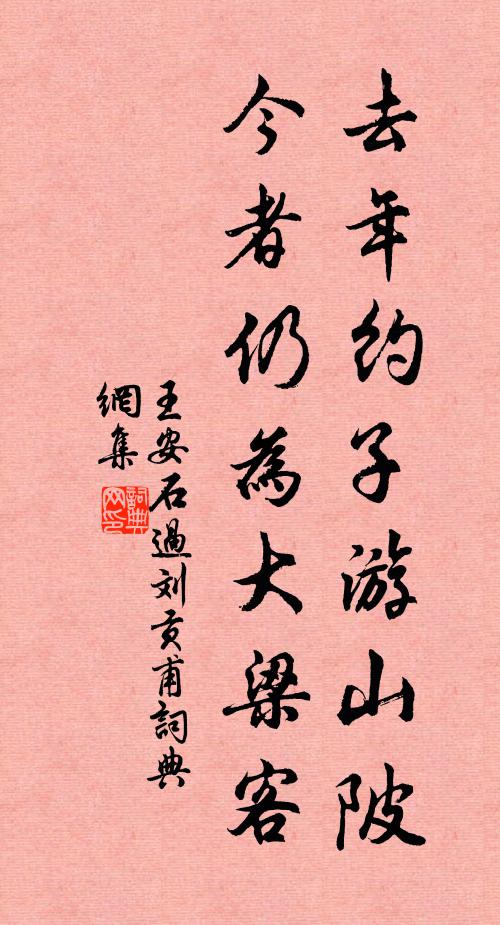 去年約子游山陂
今者仍為大梁客
王安石過刘貢甫詞典
網集
詞典
网印